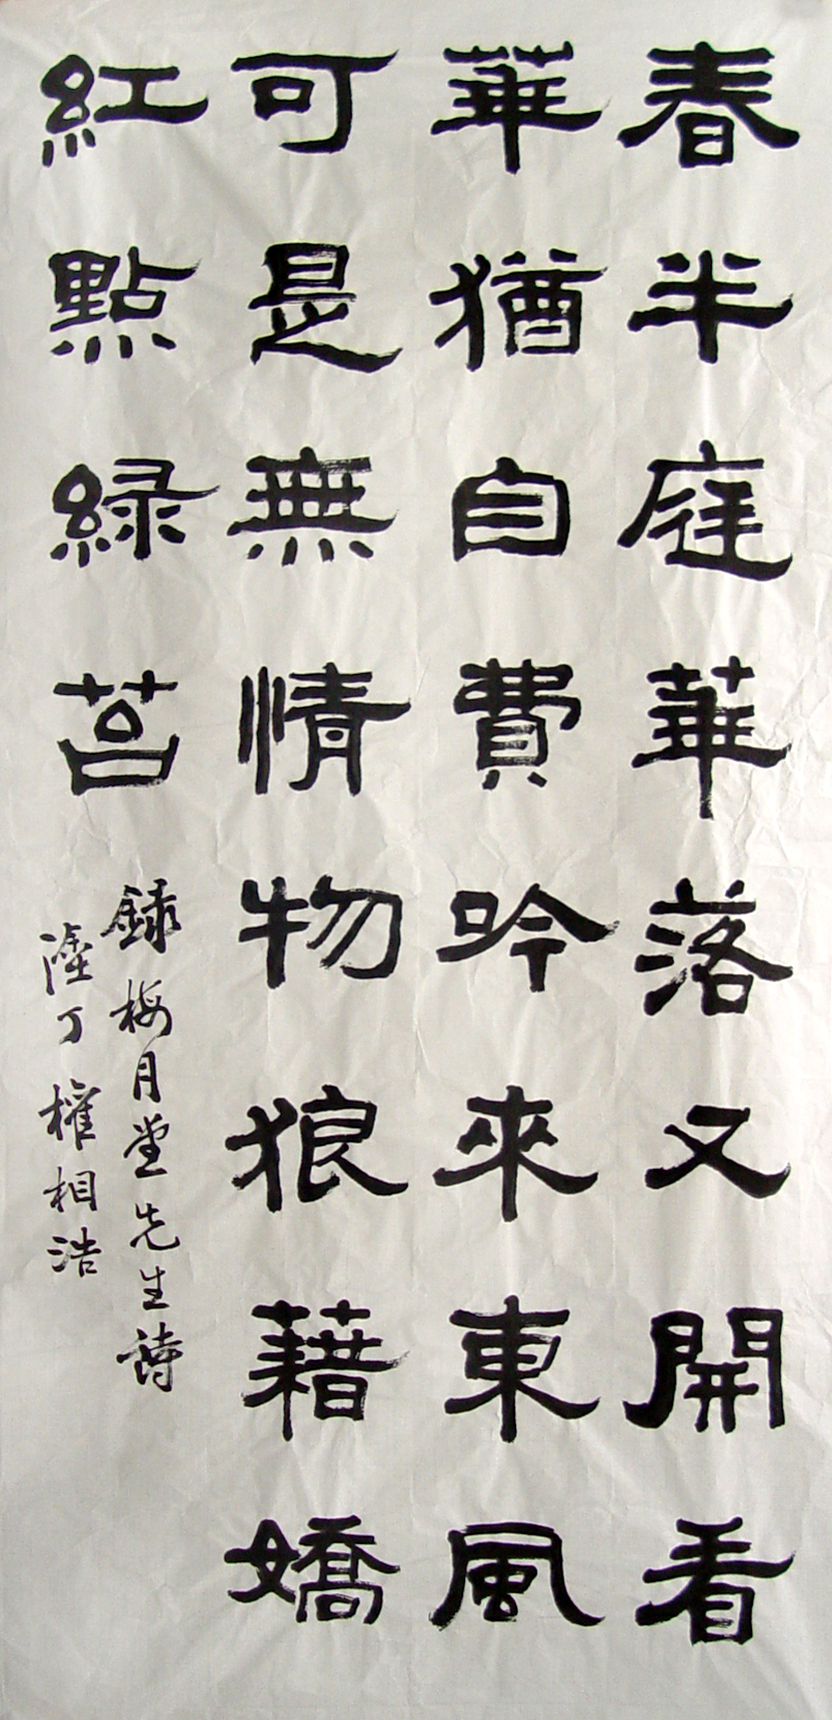 春半庭華落又開看
華猶自費吟來東風
可是無情物狼藉嬌
紅點綠莒
錄梅月堂先生詩
丁權相浩